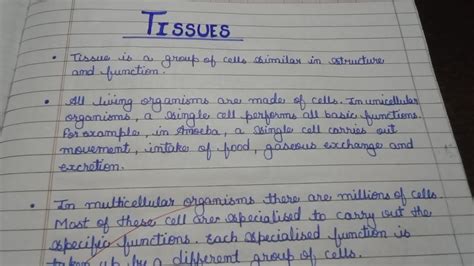 TISSUES
• Tissue is a group of cells similar in structure
and function.
• All living organisms are made of cells. In unicellular
organisms, a single cell performs all basic functions.
For example, in Amoeba, a single cell carries out
movement, intake of food, gaseous exchange and
excretion.
• In multicellular organisms there are millions of cells.
Most of these cell are specialised to carry out the
specific functions. Each specialised function is
taken up by a different group of cells.